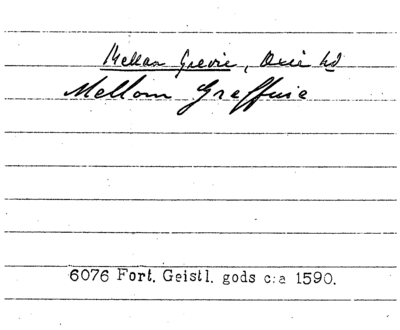 Mellan Grevie, Oxie hd
Mellom Greffuie
6076 Fort. Geistl. gods c:a 1590.